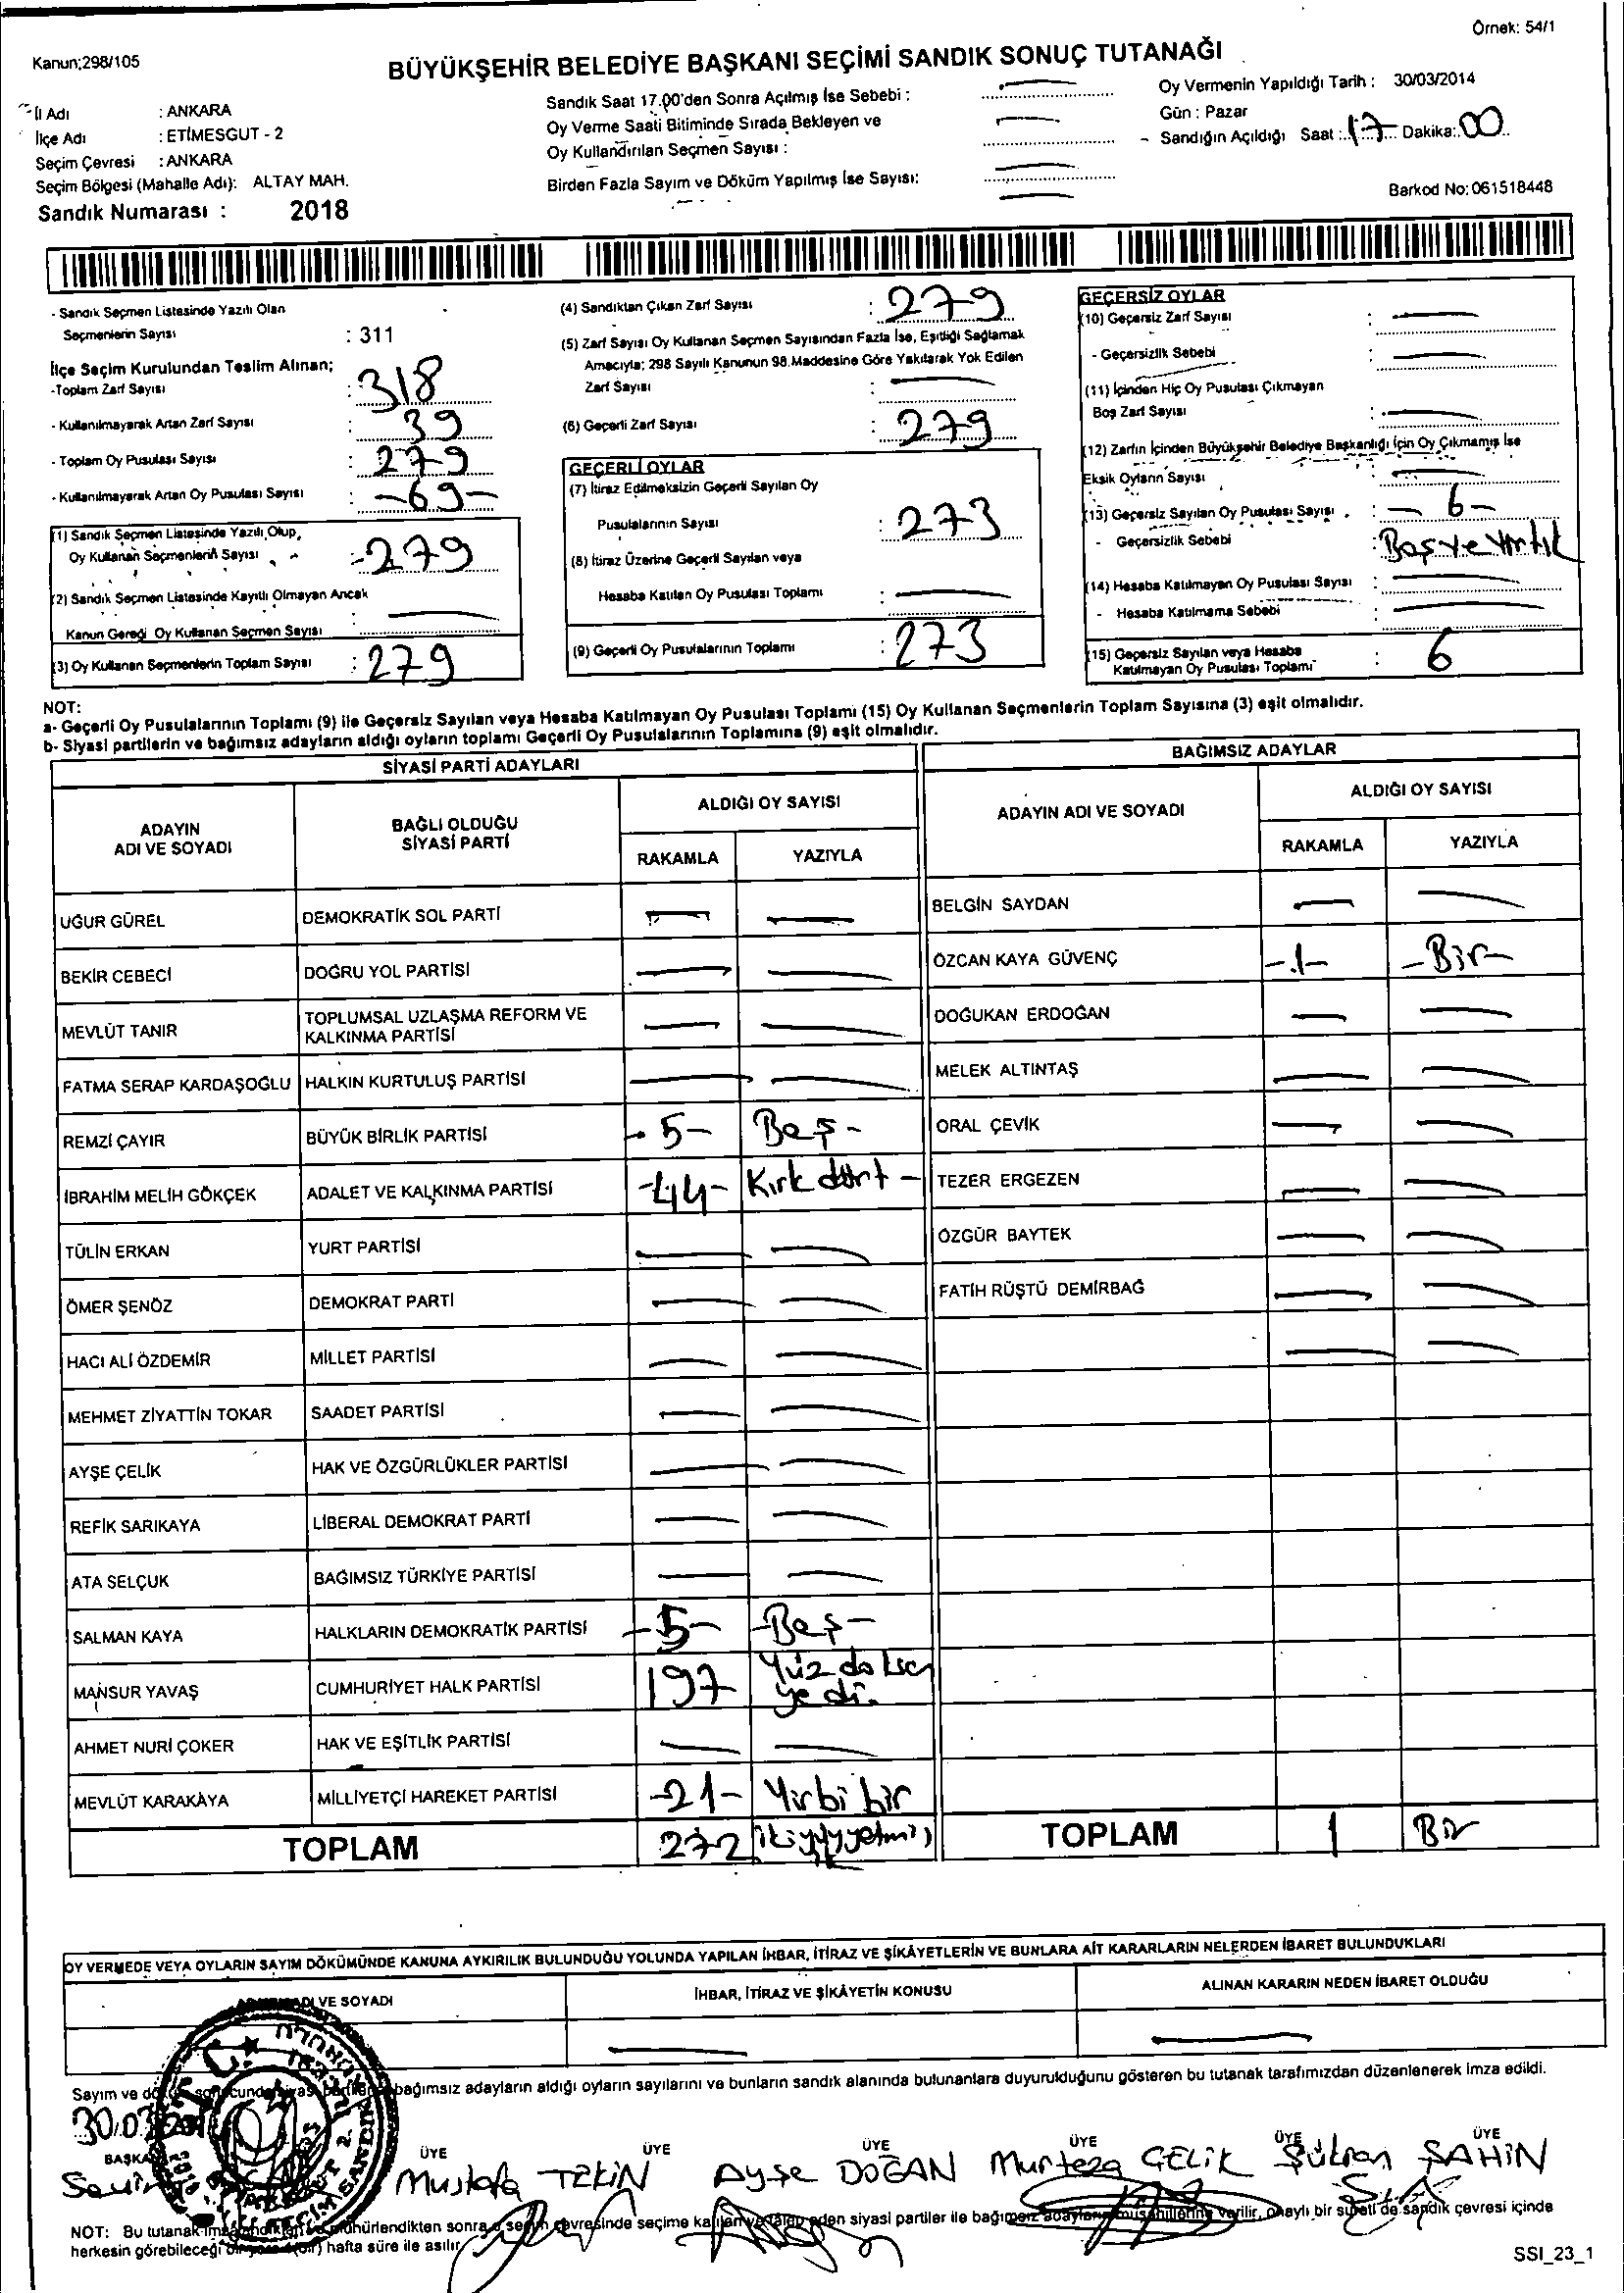 Örnek: 54/1
Kanun;298/105
BÜYÜKŞEHİR BELEDİYE BAŞKANI SEÇİMİ SANDIK SONUÇ TUTANAĞI
İl Adı : ANKARA
İlçe Adı : ETİMESGUT - 2
Seçim Çevresi : ANKARA
Seçim Bölgesi (Mahalle Adı): ALTAY MAH.
Sandık Numarası : 2018
Sandık Saat 17.00'den Sonra Açılmış İse Sebebi :
Oy Verme Saati Bitiminde Sırada Bekleyen ve
Oy Kullandırılan Seçmen Sayısı :
Birden Fazla Sayım ve Döküm Yapılmış İse Sayısı:
Oy Vermenin Yapıldığı Tarih : 30/03/2014
Gün : Pazar
Sandığın Açıldığı Saat : 17 Dakika: 00
Barkod No: 061518448
- Sandık Seçmen Listesinde Yazılı Olan
Seçmenlerin Sayısı : 311
İlçe Seçim Kurulundan Teslim Alınan;
-Toplam Zarf Sayısı : 318
- Kullanılmayarak Artan Zarf Sayısı : 39
- Toplam Oy Pusulası Sayısı : 279
- Kullanılmayarak Artan Oy Pusulası Sayısı : -69-
(1) Sandık Seçmen Listesinde Yazılı Olup,
Oy Kullanan Seçmenlerin Sayısı : 279
(2) Sandık Seçmen Listesinde Kayıtlı Olmayan Ancak
Kanun Gereği Oy Kullanan Seçmen Sayısı :
(3) Oy Kullanan Seçmenlerin Toplam Sayısı : 279
(4) Sandıktan Çıkan Zarf Sayısı : 279
(5) Zarf Sayısı Oy Kullanan Seçmen Sayısından Fazla İse, Eşitliği Sağlamak
Amacıyla; 298 Sayılı Kanunun 98.Maddesine Göre Yakılarak Yok Edilen
Zarf Sayısı :
(6) Geçerli Zarf Sayısı : 279
GEÇERLİ OYLAR
(7) İtiraz Edilmeksizin Geçerli Sayılan Oy
Pusulalarının Sayısı : 273
(8) İtiraz Üzerine Geçerli Sayılan veya
Hesaba Katılan Oy Pusulası Toplamı :
(9) Geçerli Oy Pusulalarının Toplamı : 273
GEÇERSİZ OYLAR
(10) Geçersiz Zarf Sayısı :
- Geçersizlik Sebebi :
(11) İçinden Hiç Oy Pusulası Çıkmayan
Boş Zarf Sayısı :
(12) Zarfın İçinden Büyükşehir Belediye Başkanlığı İçin Oy Çıkmamış İse
Eksik Oyların Sayısı :
(13) Geçersiz Sayılan Oy Pusulası Sayısı : - 6 -
- Geçersizlik Sebebi : Boş ve Yırtık
(14) Hesaba Katılmayan Oy Pusulası Sayısı :
- Hesaba Katılmama Sebebi :
(15) Geçersiz Sayılan veya Hesaba
Katılmayan Oy Pusulası Toplamı : 6
NOT:
a- Geçerli Oy Pusulalarının Toplamı (9) ile Geçersiz Sayılan veya Hesaba Katılmayan Oy Pusulası Toplamı (15) Oy Kullanan Seçmenlerin Toplam Sayısına (3) eşit olmalıdır.
b- Siyasi partilerin ve bağımsız adayların aldığı oyların toplamı Geçerli Oy Pusulalarının Toplamına (9) eşit olmalıdır.
SİYASİ PARTİ ADAYLARI
ADAYIN ADI VE SOYADI
BAĞLI OLDUĞU SİYASİ PARTİ
ALDIĞI OY SAYISI
RAKAMLA YAZIYLA
UĞUR GÜREL DEMOKRATİK SOL PARTİ
BEKİR CEBECİ DOĞRU YOL PARTİSİ
MEVLÜT TANIR TOPLUMSAL UZLAŞMA REFORM VE KALKINMA PARTİSİ
FATMA SERAP KARDAŞOĞLU HALKIN KURTULUŞ PARTİSİ
REMZİ ÇAYIR BÜYÜK BİRLİK PARTİSİ - 5 - Beş -
İBRAHİM MELİH GÖKÇEK ADALET VE KALKINMA PARTİSİ -44- Kırk dört -
TÜLİN ERKAN YURT PARTİSİ
ÖMER ŞENÖZ DEMOKRAT PARTİ
HACI ALİ ÖZDEMİR MİLLET PARTİSİ
MEHMET ZİYATTİN TOKAR SAADET PARTİSİ
AYŞE ÇELİK HAK VE ÖZGÜRLÜKLER PARTİSİ
REFİK SARIKAYA LİBERAL DEMOKRAT PARTİ
ATA SELÇUK BAĞIMSIZ TÜRKİYE PARTİSİ
SALMAN KAYA HALKLARIN DEMOKRATİK PARTİSİ -5- -Beş-
MANSUR YAVAŞ CUMHURİYET HALK PARTİSİ 197 Yüz doksan yedi.
AHMET NURİ ÇOKER HAK VE EŞİTLİK PARTİSİ
MEVLÜT KARAKAYA MİLLİYETÇİ HAREKET PARTİSİ -21- Yirbi bir
TOPLAM 272
BAĞIMSIZ ADAYLAR
ADAYIN ADI VE SOYADI
ALDIĞI OY SAYISI
RAKAMLA YAZIYLA
BELGİN SAYDAN
ÖZCAN KAYA GÜVENÇ -1- -Bir-
DOĞUKAN ERDOĞAN
MELEK ALTINTAŞ
ORAL ÇEVİK
TEZER ERGEZEN
ÖZGÜR BAYTEK
FATİH RÜŞTÜ DEMİRBAĞ
TOPLAM 1 Bir
OY VERMEDE VEYA OYLARIN SAYIM DÖKÜMÜNDE KANUNA AYKIRILIK BULUNDUĞU YOLUNDA YAPILAN İHBAR, İTİRAZ VE ŞİKÂYETLERİN VE BUNLARA AİT KARARLARIN NELERDEN İBARET BULUNDUKLARI
VE SOYADI
İHBAR, İTİRAZ VE ŞİKÂYETİN KONUSU
ALINAN KARARIN NEDEN İBARET OLDUĞU
Sayım ve bağımsız adayların aldığı oyların sayılarını ve bunların sandık alanında bulunanlara duyurulduğunu gösteren bu tutanak tarafımızdan düzenlenerek imza edildi.
30.03
ÜYE ÜYE ÜYE ÜYE ÜYE ÜYE
Mustafa TEKİN Ayşe DOĞAN Murteza ÇELİK Şükran ŞAHİN
NOT: Bu tutanak mühürlendikten sonra seçim çevresinde seçime katılan eden siyasi partiler ile bağımsız verilir, onaylı bir sureti de sandık çevresi içinde
herkesin görebileceği hafta süre ile asılır.
SSI_23_1